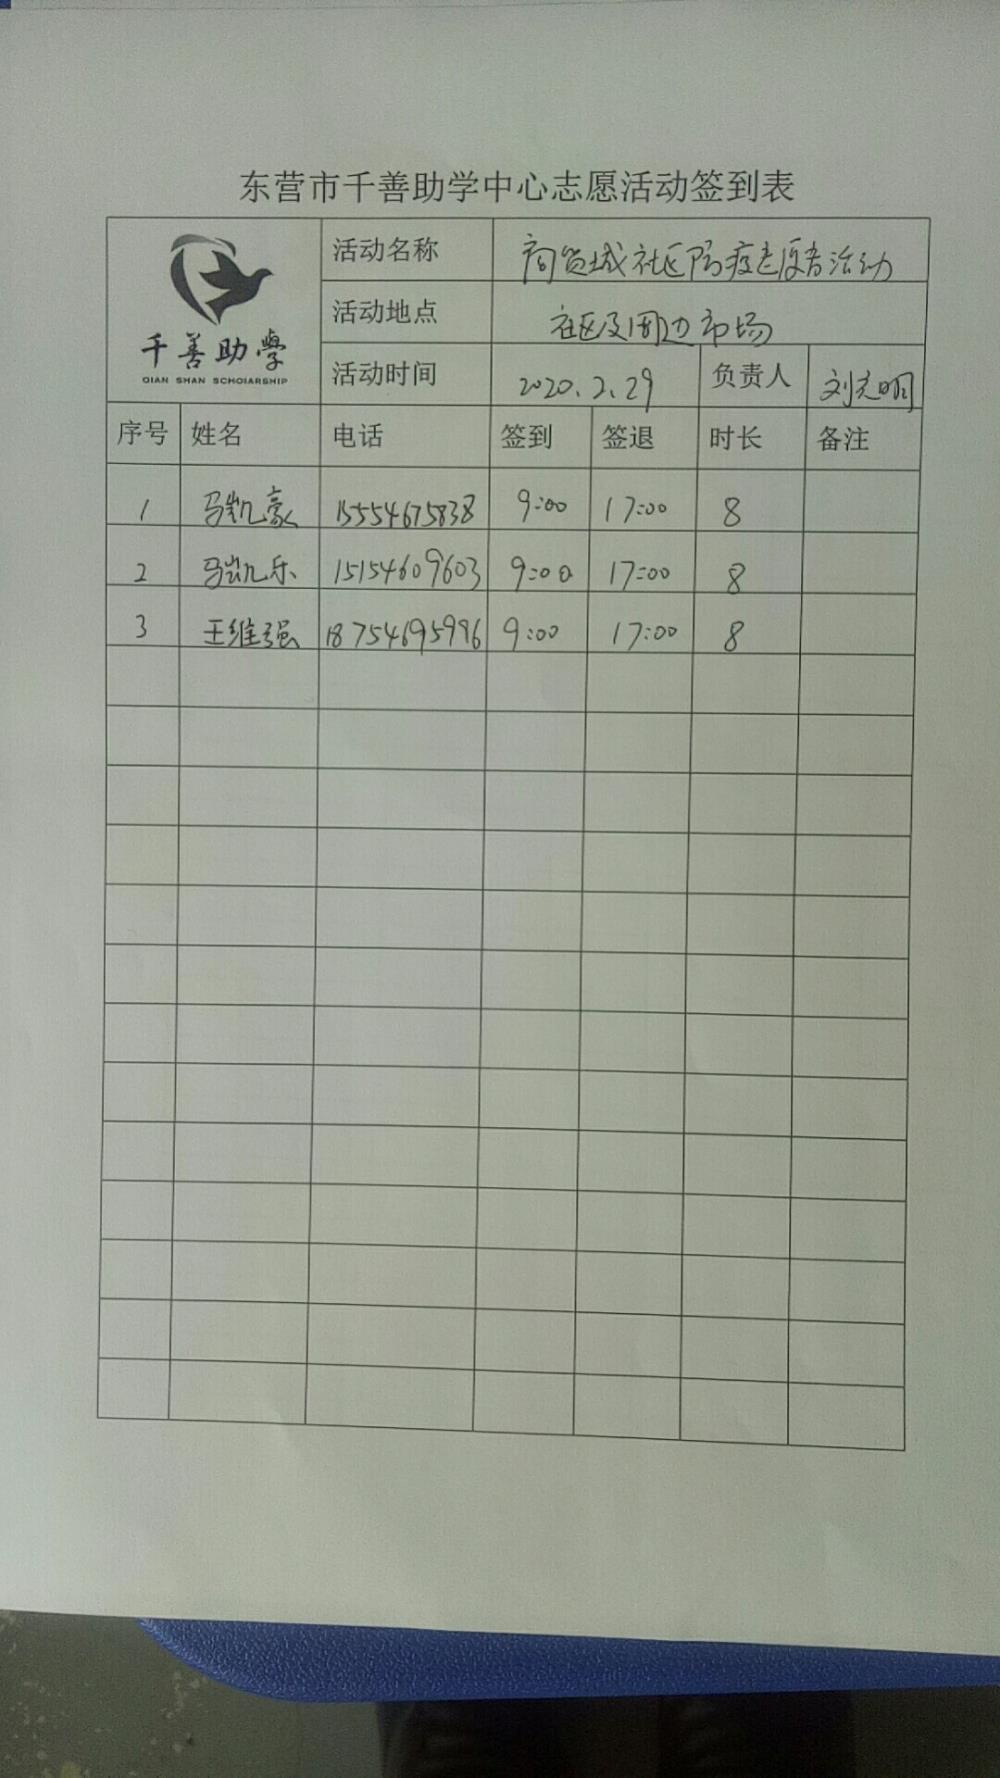 东营市千善助学中心志愿活动签到表
千善助学
QIAN SHAN SCHOIARSHIP
活动名称 商贸城社区防疫志愿者活动
活动地点 社区及周边市场
活动时间 2020.2.29 负责人 刘志明
序号 姓名 电话 签到 签退 时长 备注
1 马凯豪 15554675838 9:00 17:00 8
2 马凯乐 15154609603 9:00 17:00 8
3 王维强 18754695996 9:00 17:00 8